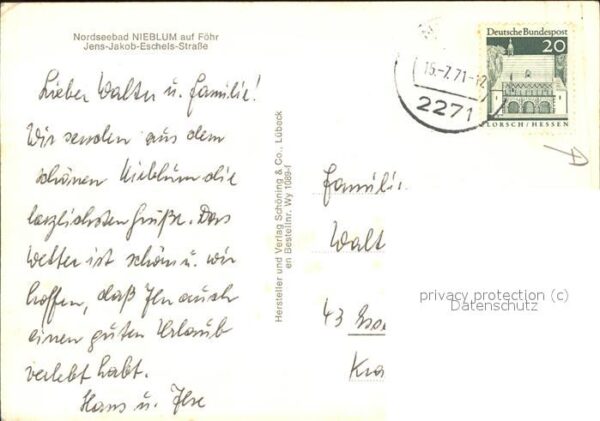 Nordseebad NIEBLUM auf Föhr
Jens-Jakob-Eschels-Straße
Lieber Walter u. Familie!
Wir senden aus dem
schönen Nieblum die
herzlichsten Grüße. Das
Wetter ist schön u. wir
hoffen, daß Ihr auch
einen guten Urlaub
verlebt habt.
Hans u. Ilse
Hersteller und Verlag Schöning & Co., Lübeck
en Bestellnr. Wy 1089-f
15.-7.71-12
2271
Deutsche Bundespost
20
LORSCH/HESSEN
Familie
Walt
43 Esse
Kra
privacy protection (c)
Datenschutz